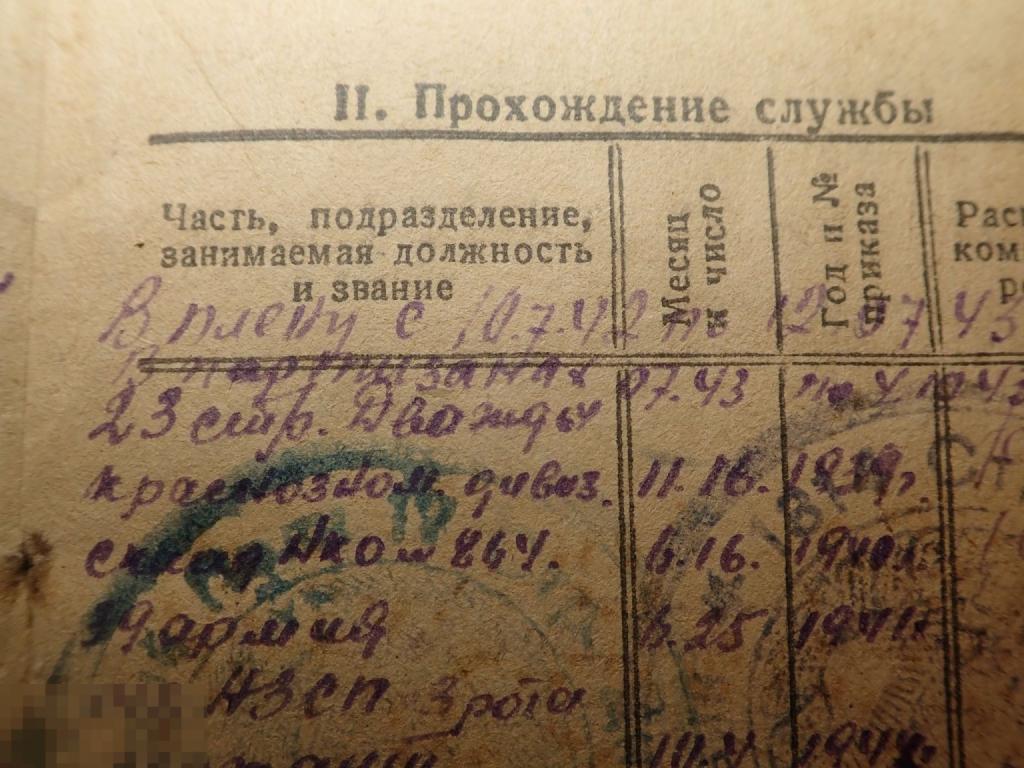 II. Прохождение службы
Часть, подразделение,
занимаемая должность
и звание
Месяц
и число
Год и №
приказа
В плену с 10.7.42 по 12 07 43
В партизанах 07.43 по
23 стр. Дважды
краснозном. дивиз. 11.16. 1939г.
склад Нком 864. 6.16. 1940г.
39 армия 6.25 1941г.
НЗСП 3 рота
10.4 1944г.